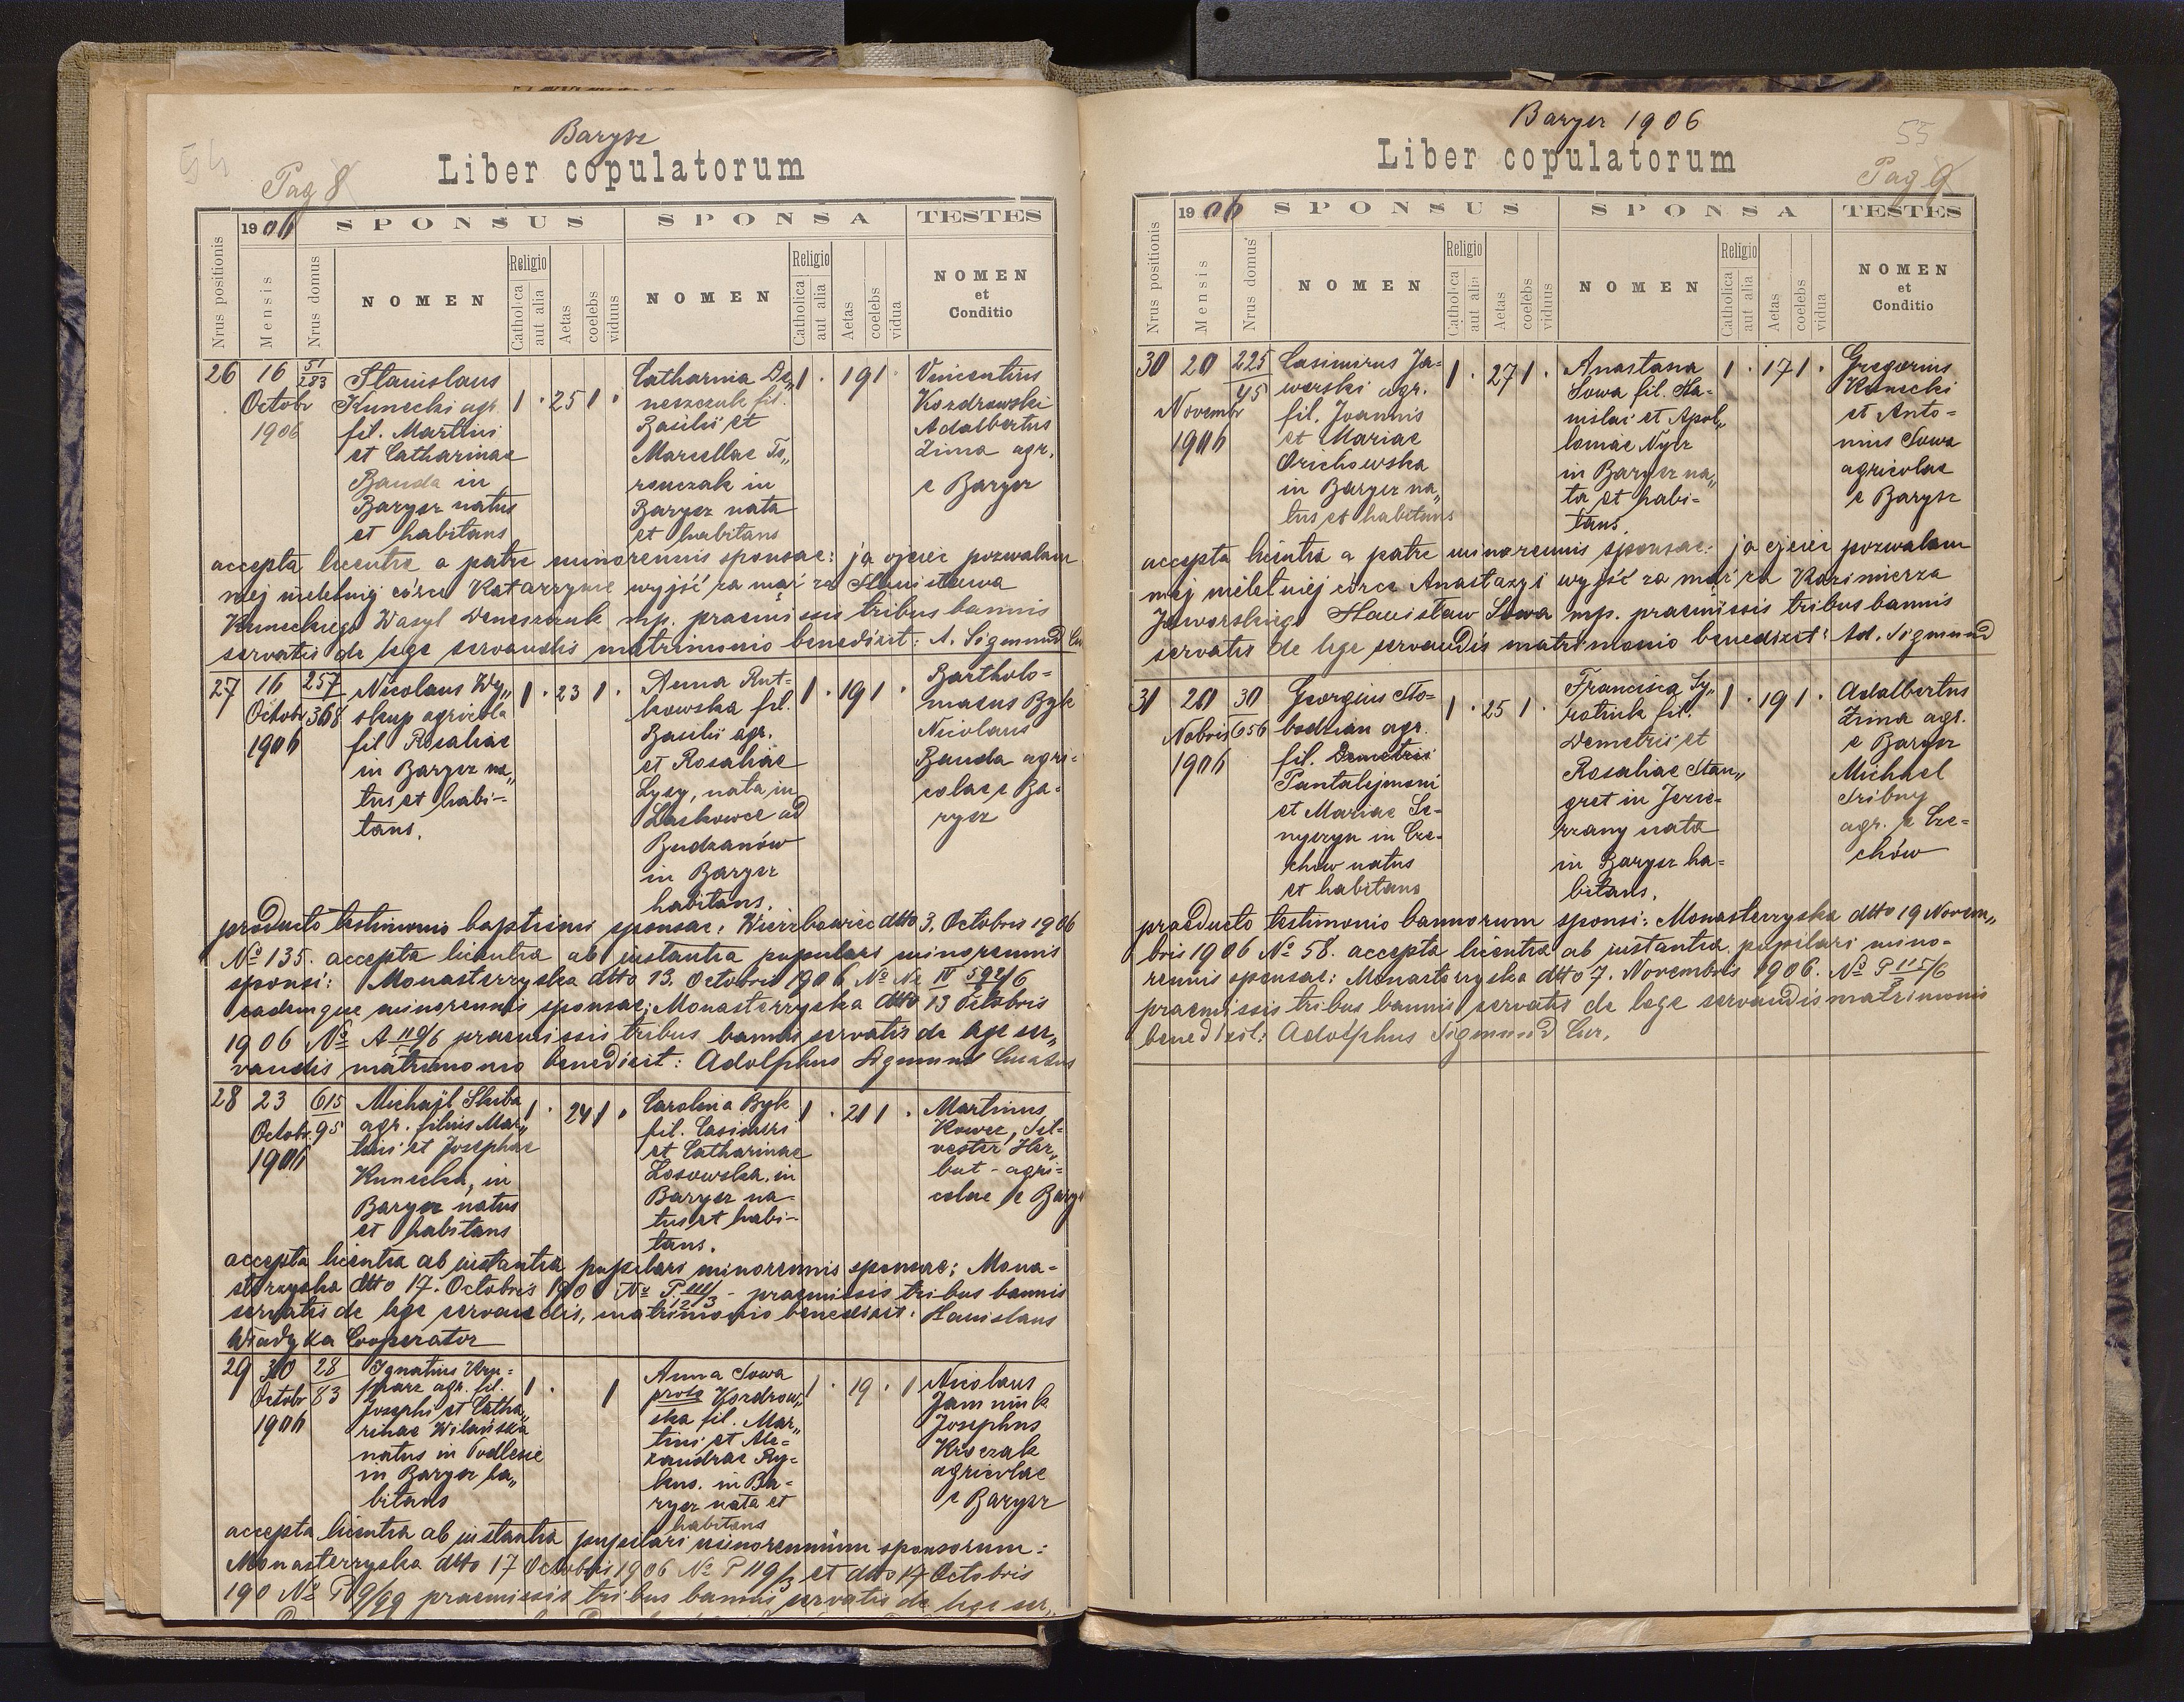 Barysz
Liber copulatorum
54
Pag 8
1906
SPONSUS
SPONSA
TESTES
Nrus positionis
Mensis
Nrus domus
NOMEN
Religio
Catholica
aut alia
Aetas
coelebs
viduus
NOMEN
Religio
Catholica
aut alia
Aetas
coelebs
vidua
NOMEN
et
Conditio
26
16
Octobr
1906
51
283
Stanislaus
Kunecki agr.
fil. Martini
et Catharinae
Bauda in
Barysz natus
et habitans
1 . 25 1 .
Catharina De„
neszczuk fil.
Basilii et
Marcellae
in
Barysz nata
et habitans
1 . 19 1 .
Vincentius
Kozdrowski
Adalbertus
Zima agr.
e Barysz
accepta licentia a patre minorennis sponsae: ja ojciec pozwalam
mej nieletniej córce Katarzynie wyjść za mąż za Stanisława
Kuneckiego Wasyl Deneszczuk mp. praemissis tribus bannis
servatis de lege servandis matrimonio benedixit: A. Sigmund
27
16
Octobr
1906
257
368
Nicolaus Wy„
skup agricola
fil Rosaliae
in Barysz na„
tus et habi-
tans.
1 . 23 1 .
Anna Rut-
kowska fil.
Basilii agr.
et Rosaliae
Lysy, nata in
Laskowce ad
Budzanów
in Barysz
habitans.
1 . 19 1 .
Bartholo-
maeus Byk
Nicolaus
Bauda agri-
colae e Ba-
rysz
producto testimonio baptismi sponsae: Wierzbowiec dtto 3. Octobris 1906
No 135. accepta licentia ab instantia pupilari minorennis
sponsi: Monasterzyska dtto 13. Octobris 1906 No
eademque minorennis sponsae: Monasterzyska dtto 13 Octobris
1906 No praemissis tribus bannis servatis de lege ser„
vandis matrimonio benedixit: Adolphus Sigmund Curatus
28
23
Octobr.
1906
615
95
Michaël Skiba
agr. filius Mar„
tini et Josephae
Kunecka, in
Barysz natus
et habitans
1 . 24 1 .
Carolina Byk
fil. Casimiri
et Catharinae
Losowska, in
Barysz na-
tus et habi-
tans.
1 . 21 1 .
Martinus
Kowcz, Sil-
vester Her„
but - agri-
colae e Barysz
accepta licentia ab instantia pupilari minorennis sponsae: Mona-
sterzyska dtto 17. Octobris 190 No - praemissis tribus bannis
servatis de lege servandis, matrimonio benedixit: Stanislaus
Władyka Cooperator
29
30
Octobr
1906
28
83
Ignatius
agr. fil.
Josephi et Catha„
rinae Wilańska
natus in Podlesie
in Barysz ha„
bitans
1 . 1
Anna Sowa
Kozdrow„
ska fil. Mar„
tini et Ale-
xandrae Ry-
in Ba-
rysz nata et
habitans
1 . 19 . 1
Nicolaus
Jamniuk
Josephus
Kroczak
agricolae
e Barysz
accepta licentia ab instantia pupilari minorennium sponsorum:
Monasterzyska dtto 17 Octobris 1906 No P 119/3 et dtto 17 Octobris
190 No praemissis tribus bannis servatis de lege ser„
Barysz 1906
Liber copulatorum
55
Pag 9
1906
SPONSUS
SPONSA
TESTES
Nrus positionis
Mensis
Nrus domus
NOMEN
Religio
Catholica
aut alia
Aetas
coelebs
viduus
NOMEN
Religio
Catholica
aut alia
Aetas
coelebs
vidua
NOMEN
et
Conditio
30
20
Novembr
1906
225
45
Casimirus Ja-
worski agr.
fil. Joannis
et Mariae
Orichowska
in Barysz na„
tus et habitans
1 . 27 1 .
Anastasia
Sowa fil. Sta-
nislai et Apol„
loniae Nyer
in Barysz na„
ta et habi-
tans.
1 . 17 1 .
Gregorius
Kunecki
et Anto-
nius Sowa
agricolae
e Barysz
accepta licentia a patre minorennis sponsae: ja ojciec pozwalam
mej nieletniej córce Anastazyi wyjść za mąż za Kazimierza
Jaworskiego Stanisław Sowa mp. praemissis tribus bannis
servatis de lege servandis matrimonio benedixit: Ad. Sigmund
31
20
Nobris
1906
30
656
Georgius Sto-
bodzian agr.
fil. Demetrii
Pantalejmoni
et Mariae Se-
nyszyn in Cze-
chów natus
et habitans
1 . 25 1 .
Francisca Sy„
rotiuk fil.
Demetrii et
Rosaliae Stan„
gret in Jezie-
rzany nata
in Barysz ha-
bitans.
1 . 19 1 .
Adalbertus
Zima agr.
e Barysz
Michael
Sribny
agr. e Cze-
chów
producto testimonio bannorum sponsi: Monasterzyska dtto 19 Novem„
bris 1906 No 58. accepta licentia ab instantia pupilari mino-
rennis sponsae: Monasterzyska dtto 7. Novembris 1906. No
praemissis tribus bannis servatis de lege servandis matrimonio
benedixit: Adolphus Sigmund Cur.